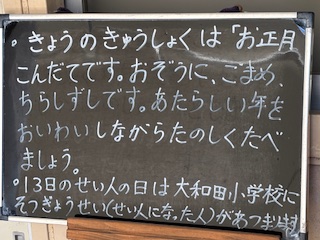 ・きょうのきゅうしょくは「お正月
こんだてです。おぞうに、ごまめ、
ちらしずしです。あたらしい年を
おいわいしながらたのしくたべ
ましょう。
・13日のせい人の日は大和田小学校に
そつぎょうせい(せい人になった人)があつまります